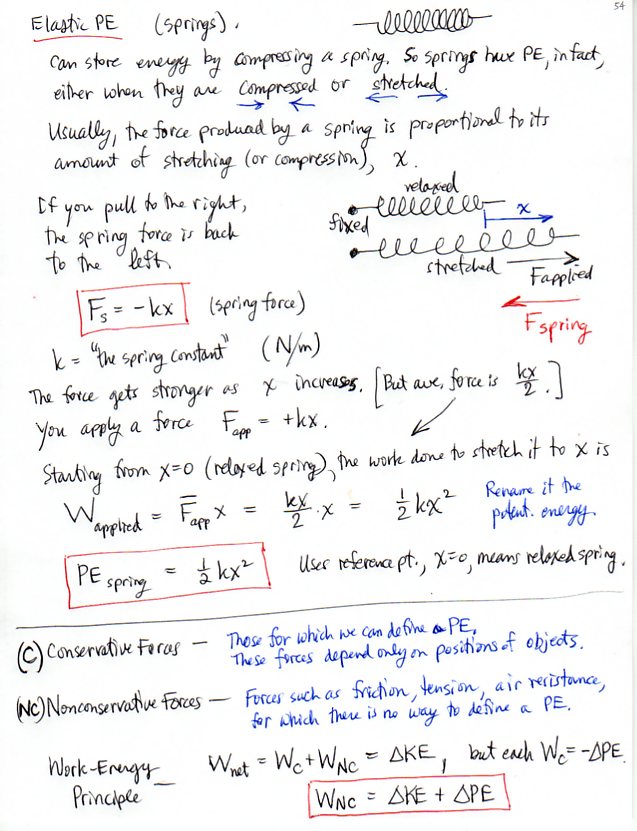 54
Elastic PE (springs).
Can store energy by compressing a spring. So springs have PE, in fact,
either when they are compressed or stretched.
Usually, the force produced by a spring is proportional to its
amount of stretching (or compression), x.
If you pull to the right,
the spring force is back
to the left.
relaxed
x
fixed
stretched
Fapplied
Fspring
Fs = -kx (spring force)
k = "the spring constant" (N/m)
The force gets stronger as x increases. [But ave. force is kx/2.]
You apply a force Fapp = +kx.
Starting from x=0 (relaxed spring), the work done to stretch it to x is
Wapplied = F̅app x = kx/2 · x = ½ kx²
Rename it the
potent. energy.
PE spring = ½ kx²
Uses reference pt., x=0, means relaxed spring.
(C) Conservative Forces — Those for which we can define a PE.
These forces depend only on positions of objects.
(NC) Nonconservative Forces — Forces such as friction, tension, air resistance,
for which there is no way to define a PE.
Work-Energy
Principle —
Wnet = Wc + WNC = ΔKE, but each Wc = -ΔPE.
WNC = ΔKE + ΔPE